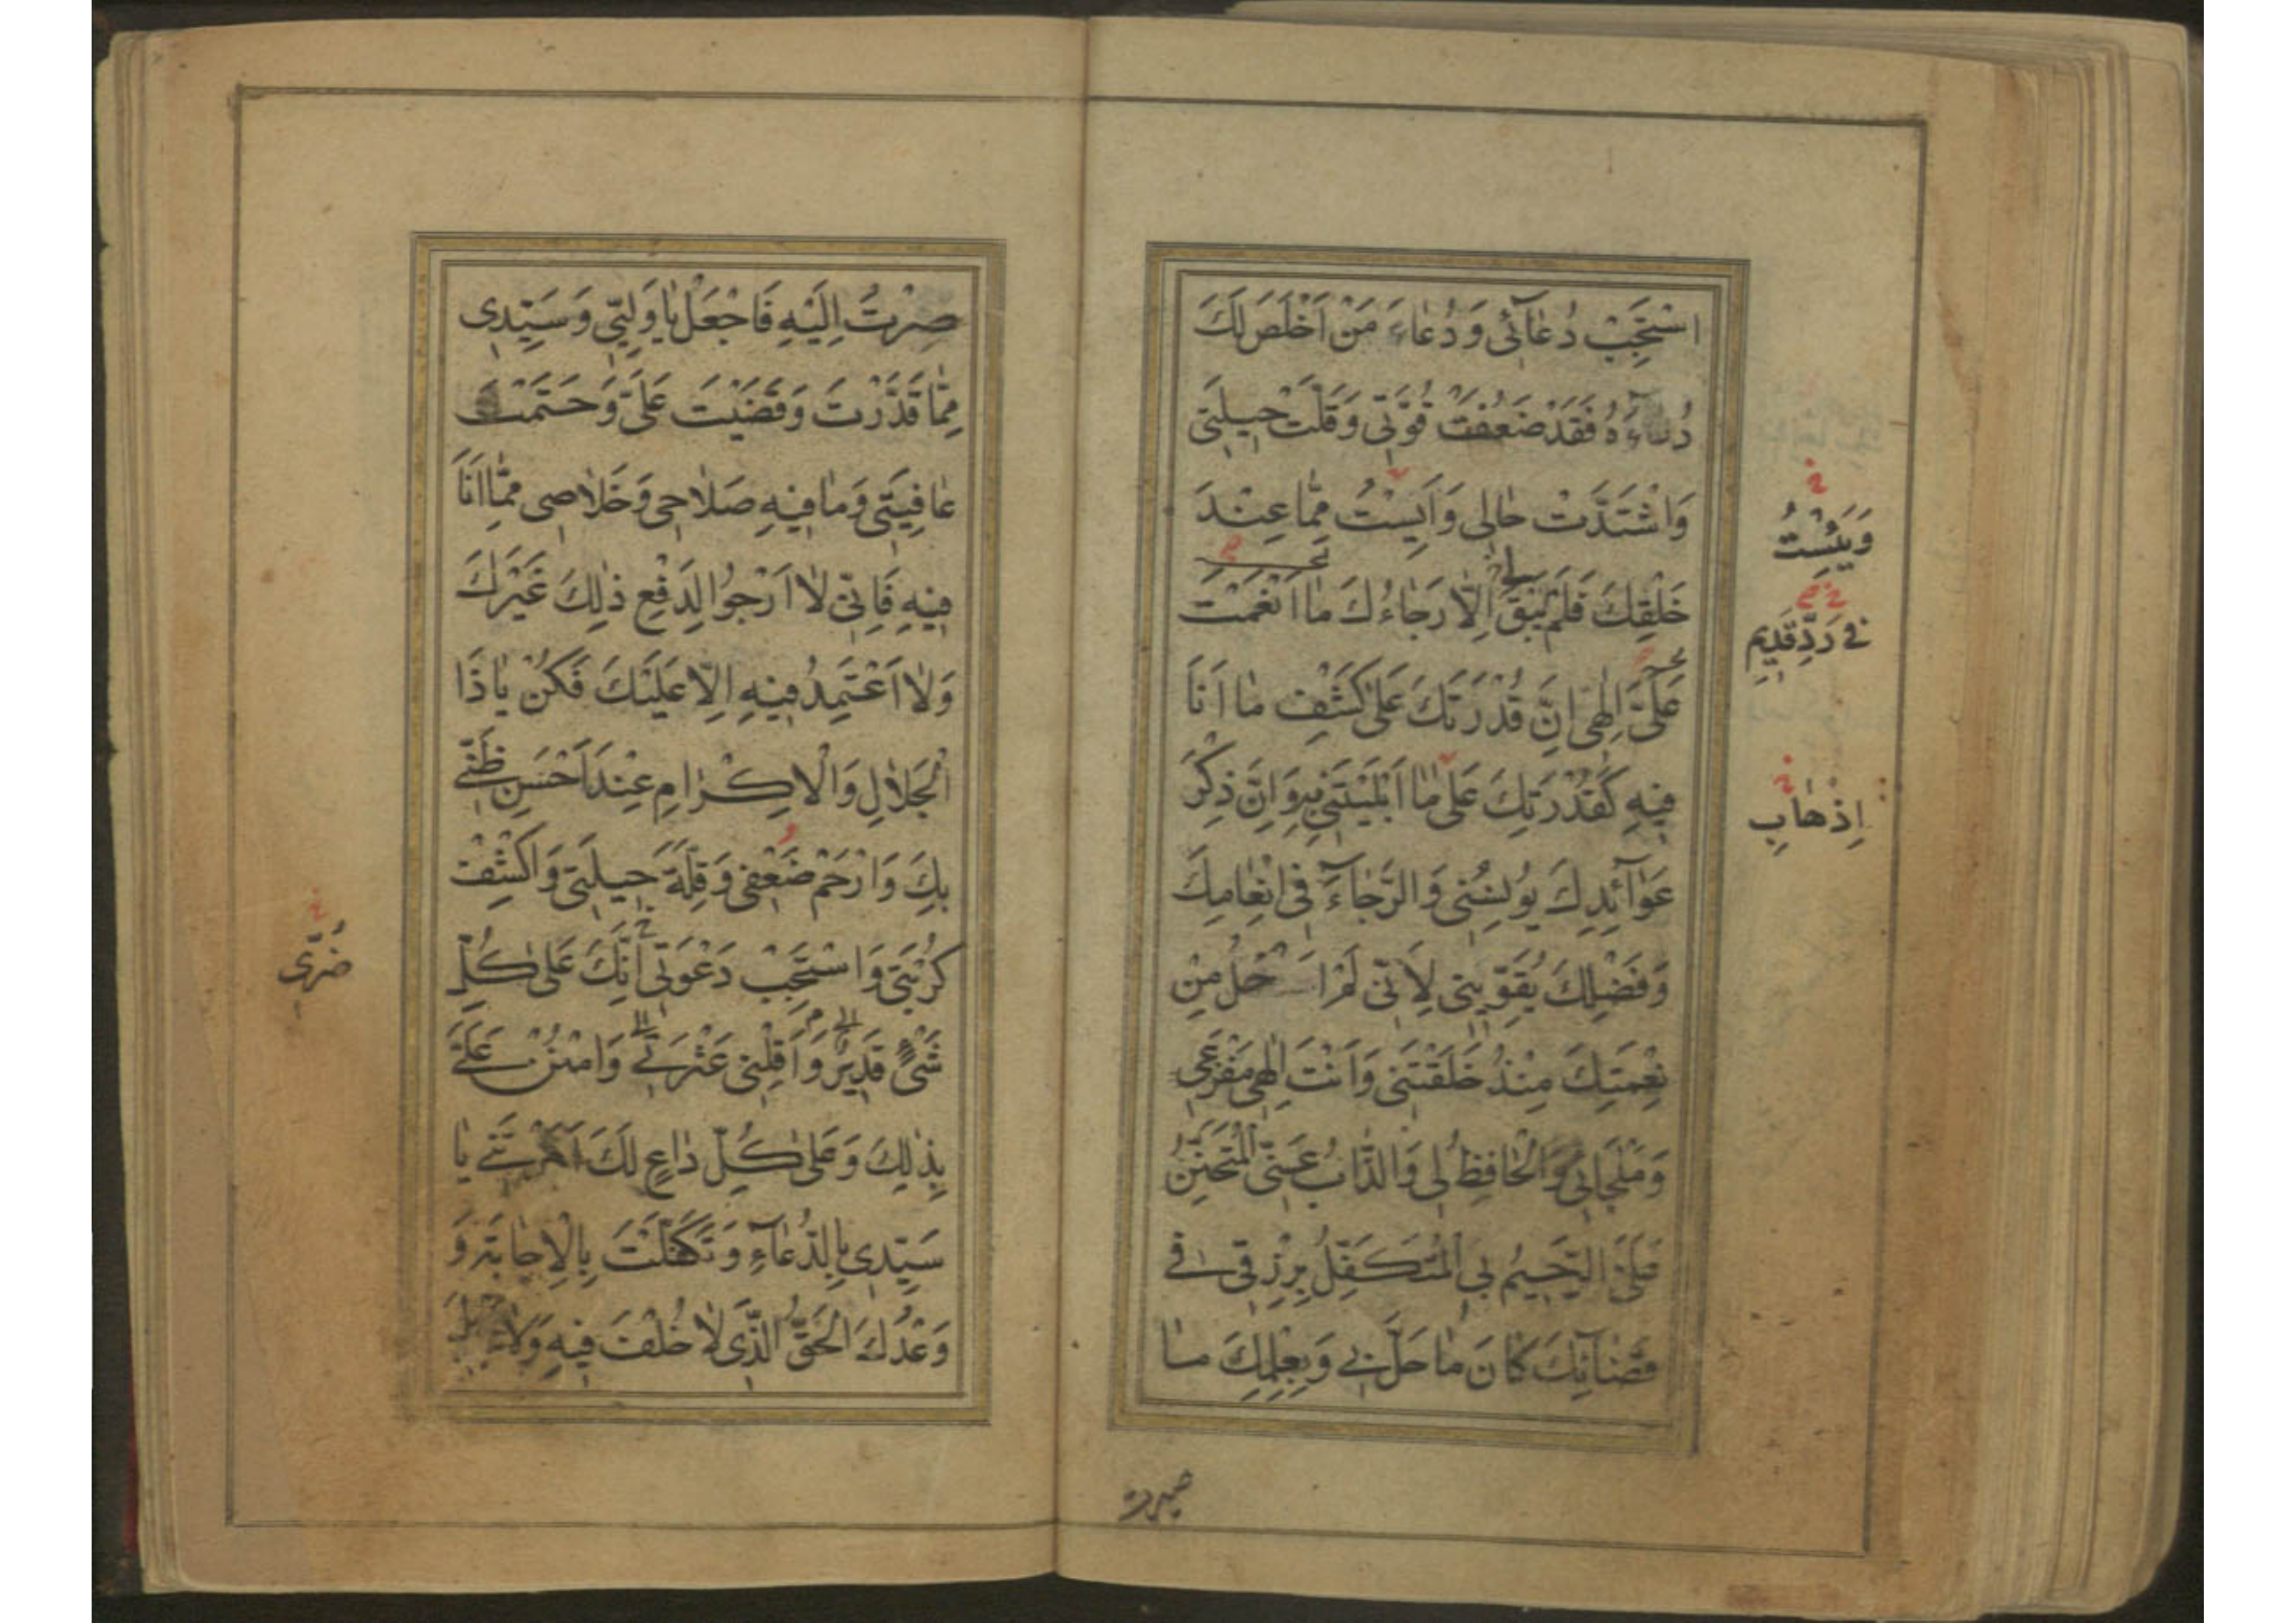 اسْتَجِبْ دُعٰآئی وَ دُعٰاءَ مَنْ اَخْلَصَ لَكَ
دُعٰاءَهُ فَقَدْ ضَعُفَتْ قُوَّتی وَقَلَّتْ حیلَتی
وَاشْتَدَّتْ حٰالی وَاَیِسْتُ مِمّٰا عِنْدَ
وَیَئِسْتُ
خَلْقِكَ فَلَمْ یَبْقَ لی اِلّٰا رَجٰاءُكَ مٰا اَنْعَمْتَ
فی رَدِّ قَدیمِ
عَلَیَّ اِلٰهی اِنَّ قُدْرَتَكَ عَلیٰ كَشْفِ مٰا اَنَا
فیهِ كَقُدْرَتِكَ عَلیٰ مٰا اَبْلَیْتَنی بِهِ وَاِنَّ ذِكْرَ
اِذْهٰابِ
عَوٰآئِدِكَ یُونِسُنی وَالرَّجٰاءَ فی اِنْعٰامِكَ
وَفَضْلِكَ یُقَوّینی لِاَنّی لَمْ اَخْلُ مِنْ
نِعْمَتِكَ مِنْذُ خَلَقْتَنی وَاَنْتَ اِلٰهی مَفْزَعی
وَمَلْجَائی وَالْحٰافِظُ لی وَالذّٰابُّ عَنّی الْمُتَحَنِّنُ
عَلَیَّ الرَّحیمُ بی الْمُتَكَفِّلُ بِرِزْقی فی
قَضٰآئِكَ كٰانَ مٰا حَلَّ بی وَبِعِلْمِكَ مٰا
صِرْتُ
صِرْتُ اِلَیْهِ فَاجْعَلْ یٰا وَلِیّی وَسَیِّدی
مِمّٰا قَدَّرْتَ وَقَضَیْتَ عَلَیَّ وَحَتَمْتَ
عٰافِیَتی وَمٰا فیهِ صَلٰاحی وَخَلٰاصی مِمّٰا اَنَا
فیهِ فَاِنّی لٰا اَرْجُوا لِدَفْعِ ذٰلِكَ غَیْرَكَ
وَلٰا اَعْتَمِدُ فیهِ اِلّٰا عَلَیْكَ فَكُنْ یٰا ذَا
الْجَلٰالِ وَالْاِكْرٰامِ عِنْدَ اَحْسَنِ ظَنّی
بِكَ وَارْحَمْ ضَعْفی وَقِلَّةَ حیلَتی وَاكْشِفْ
كُرْبَتی وَاسْتَجِبْ دَعْوَتی اِنَّكَ عَلیٰ كُلِّ
ضُرّی
شَیْءٍ قَدیرٌ وَاَقِلْنی عَثْرَتی وَامْنُنْ عَلَیَّ
بِذٰلِكَ وَعَلیٰ كُلِّ دٰاعٍ لَكَ اَمَرْتَنی یٰا
سَیِّدی بِالدُّعٰآءِ وَتَكَفَّلْتَ بِالْاِجٰابَةِ وَ
وَعْدُكَ الْحَقُّ الَّذی لٰا خُلْفَ فیهِ وَلٰا